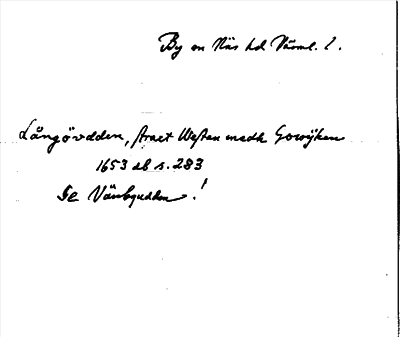 By sn Näs hd Värml. l.
Långövdden, Arnet Westan medh Gowijken
1653 db s. 283
Se Vänbyudden!